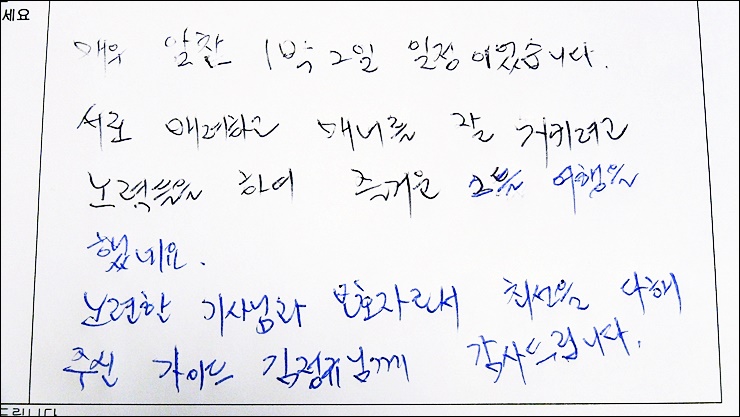 세요
매우 알찬 1박 2일 일정이었습니다.
서로 배려하고 매너를 잘 지키려고
노력들을 하여 즐거운 소풍 여행을
했네요.
노련한 기사님과 보호자로서 최선을 다해
주신 가이드 님께 감사드립니다.
드립니다